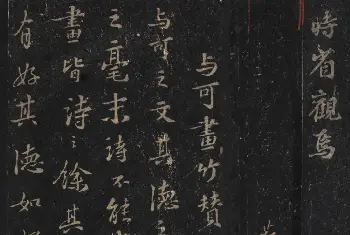 時省觀焉
与可畫竹贊
与可之文其德之
之毫末詩不能
畫皆詩之餘其
有好其德如